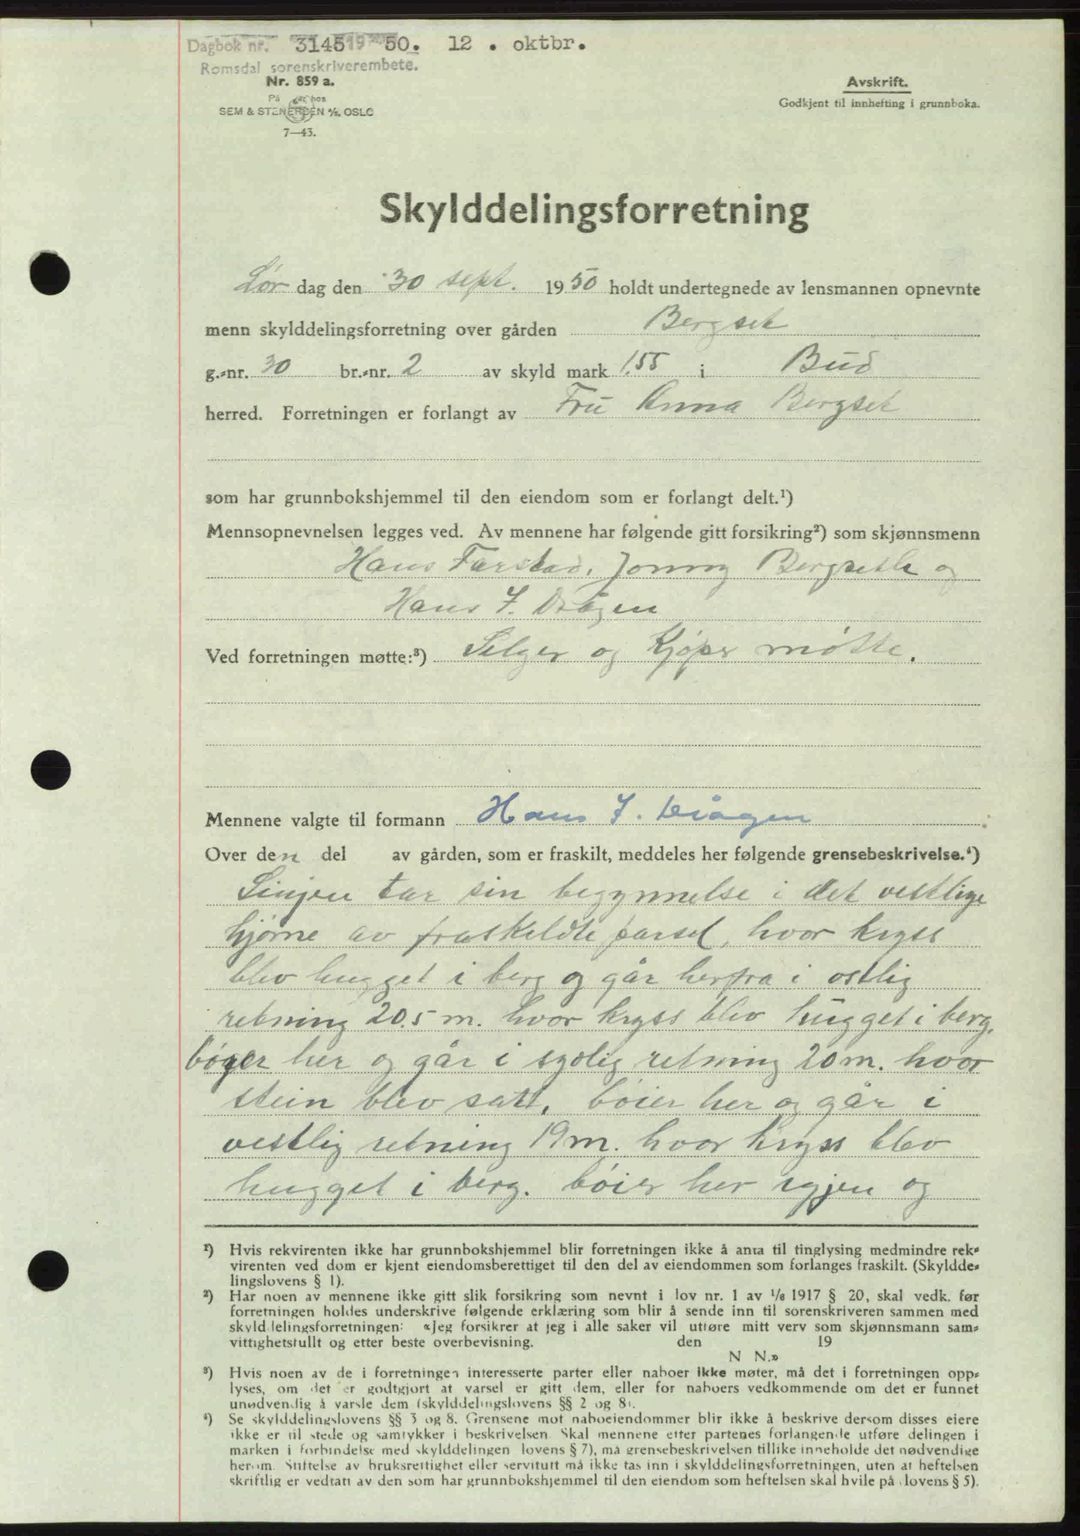 Dagbok nr. 3145 1950. 12. oktbr.
Romsdal sorenskriverembete.
Nr. 859 a.
På hos
SEM & STENERSEN A/S. OSLO
7—43.
Avskrift.
Godkjent til innhefting i grunnboka.
Skylddelingsforretning
Lør dag den 30 sept. 1950 holdt undertegnede av lensmannen opnevnte
menn skylddelingsforretning over gården Bergset
g.-nr. 30 br.-nr. 2 av skyld mark 1.55 i Bud
herred. Forretningen er forlangt av Fru Anna Bergset
som har grunnbokshjemmel til den eiendom som er forlangt delt.¹)
Mennsopnevnelsen legges ved. Av mennene har følgende gitt forsikring²) som skjønnsmenn
Hans Farstad, Jonny Bergseth og
Hans J. Drågen
Ved forretningen møtte:³) Selger og Kjøper møtte.
Mennene valgte til formann Hans J. Drågen
Over den del av gården, som er fraskilt, meddeles her følgende grensebeskrivelse.⁴)
Linjen tar sin begynnelse i det vestlige
hjørne av fraskeldte parsel, hvor kryss
blev hugget i berg og går herfra i østlig
retning 20.5 m. hvor kryss blev hugget i berg,
bøyer her og går i sydlig retning 20 m. hvor
stein blev satt, bøier her og går i
vestlig retning 19 m. hvor kryss blev
hugget i berg. bøier her igjen og
¹) Hvis rekvirenten ikke har grunnbokshjemmel blir forretningen ikke å anta til tinglysing medmindre rek-
virenten ved dom er kjent eiendomsberettiget til den del av eiendommen som forlanges fraskilt. (Skyldde-
lingslovens § 1).
²) Har noen av mennene ikke gitt slik forsikring som nevnt i lov nr. 1 av 1/6 1917 § 20, skal vedk. før
forretningen holdes underskrive følgende erklæring som blir å sende inn til sorenskriveren sammen med
skylddelingsforretningen: «Jeg forsikrer at jeg i alle saker vil utføre mitt verv som skjønnsmann sam-
vittighetsfullt og etter beste overbevisning. den 19
N N.»
³) Hvis noen av de i forretningen interesserte parter eller naboer ikke møter, må det i forretningen opp-
lyses, om det er godtgjort at varsel er gitt dem, eller for naboers vedkommende om det er funnet
unødvendig å varsle dem (skylddelingslovens §§ 2 og 8).
⁴) Se skylddelingslovens §§ 3 og 8. Grensene mot naboeiendommer blir ikke å beskrive dersom disses eiere
ikke er til stede og samtykker i beskrivelsen. Skal mennene etter partenes forlangende utføre delingen i
marken i forbindelse med skylddelingen (lovens § 7), må grensebeskrivelsen tillike inneholde det nødvendige
herom. Stiftelse av bruksrettighet eller servitutt må ikke tas inn i skylddelingsforretningen, uten at heftelsen
skriftlig er vedtatt av den som har grunnbokshjemmel til den eiendom som heftelsen skal hvile på (lovens § 5).